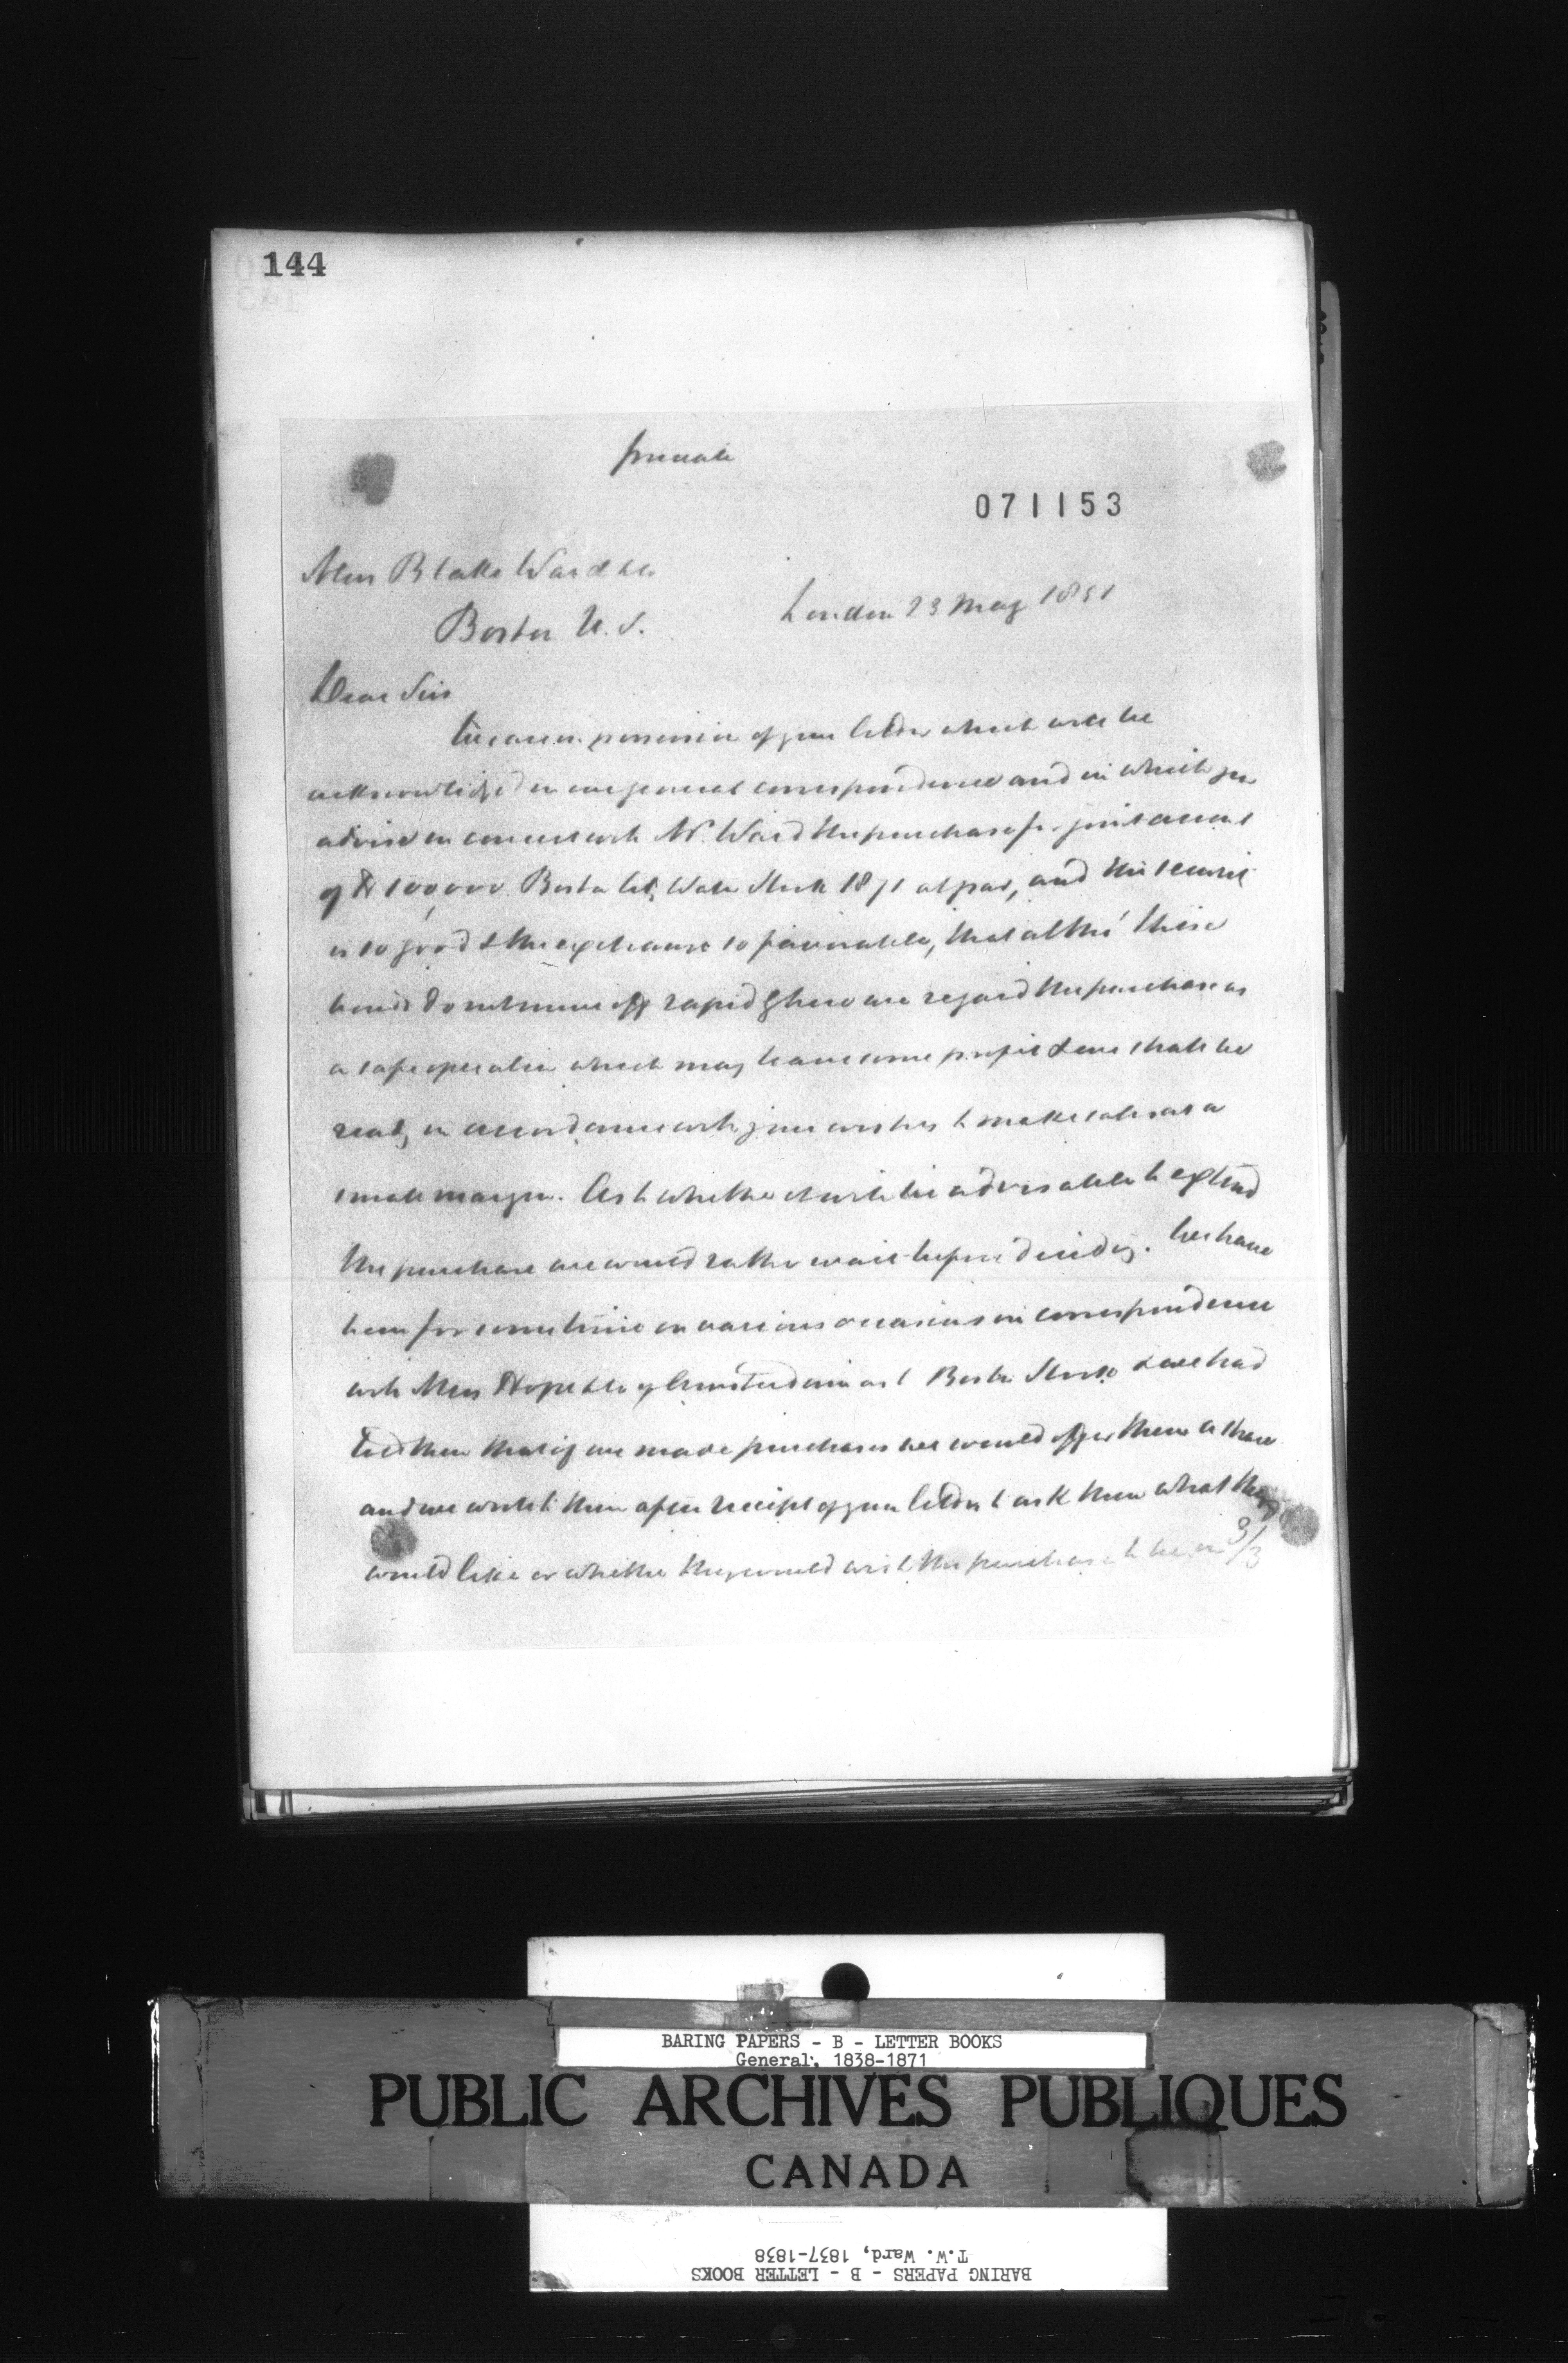 144
private
071153
Mess Blake Ward & Co
London 23 May 1851
Boston U. S.
Dear Sirs
We are in possession of your letters which will be
acknowledged in our general correspondence and in which you
advise in concert with Mr. Ward the purchase for joint account
of $ 100,000 Boston City Water Stock 1871 at par, and the security
is so good & the exchange so favorable, that altho' these
bonds do not move off rapidly here we regard the purchase as
a safe operation which may leave some profit & we shall be
ready in accordance with your wishes to make sales at a
small margin. As to whether it will be advisable to extend
the purchase we would rather wait before deciding. We have
been for some time on various occasions in correspondence
with Mess Hope & Co of Amsterdam as to Boston Stocks & we had
told them that if we made purchases we would offer them a share
and we wrote to them after receipt of your letters to ask them what they
would like or whether they would wish the purchase to be in 3/3
BARING PAPERS - B - LETTER BOOKS
General, 1838-1871
PUBLIC ARCHIVES PUBLIQUES
CANADA
T.W. Ward, 1837-1838
BARING PAPERS - B - LETTER BOOKS